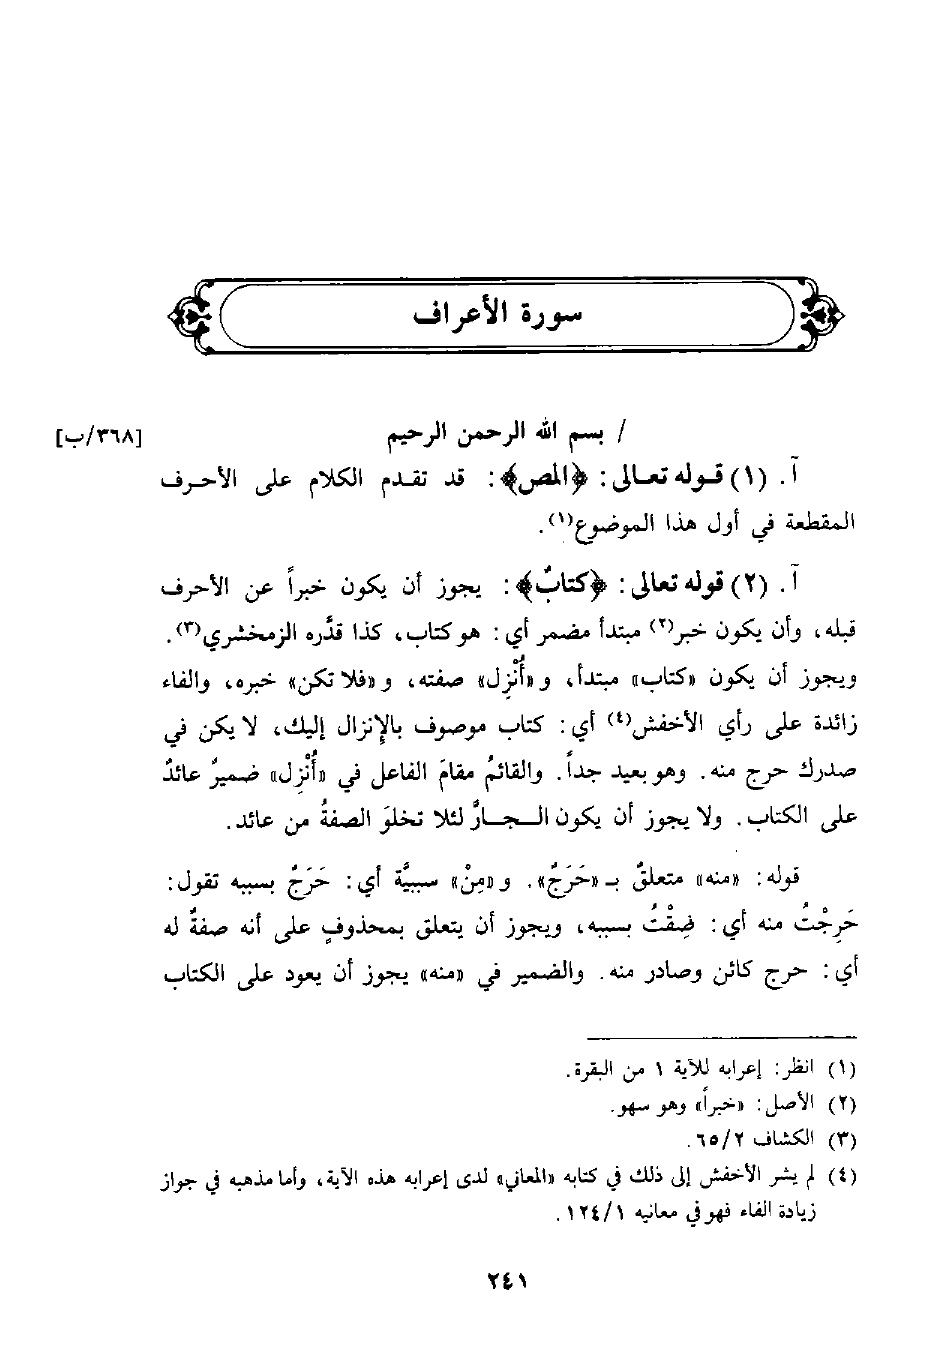 سورة الأعراف
/ بسم الله الرحمن الرحيم [٣٦٨/ب]
آ. (١) قوله تعالى: ﴿المص﴾: قد تقدم الكلام على الأحرف
المقطعة في أول هذا الموضوع(١).
آ. (٢) قوله تعالى: ﴿كتابٌ﴾: يجوز أن يكون خبراً عن الأحرف
قبله، وأن يكون خبر(٢) مبتدأ مضمر أي: هو كتاب، كذا قدَّره الزمخشري(٣).
ويجوز أن يكون «كتاب» مبتدأ، و «أُنْزِل» صفته، و «فلا تكن» خبره، والفاء
زائدة على رأي الأخفش(٤) أي: كتاب موصوف بالإِنزال إليك، لا يكن في
صدرك حرج منه. وهو بعيد جداً. والقائمُ مقامَ الفاعل في «أُنْزِل» ضميرٌ عائدٌ
على الكتاب. ولا يجوز أن يكون الـجـارَّ لئلا تخلوَ الصفةُ من عائد.
قوله: «منه» متعلقٌ بـ «حَرَجٌ». و «مِنْ» سببيَّة أي: حَرَجٌ بسببه تقول:
حَرِجْتُ منه أي: ضِقْتُ بسببه، ويجوز أن يتعلق بمحذوفٍ على أنه صفةٌ له
أي: حرج كائن وصادر منه. والضمير في «منه» يجوز أن يعود على الكتاب
(١) انظر: إعرابه للآية ١ من البقرة.
(٢) الأصل: «خبراً» وهو سهو.
(٣) الكشاف ٦٥/٢.
(٤) لم يشر الأخفش إلى ذلك في كتابه «المعاني» لدى إعرابه هذه الآية، وأما مذهبه في جواز
زيادة الفاء فهو في معانيه ١٢٤/١.
٢٤١